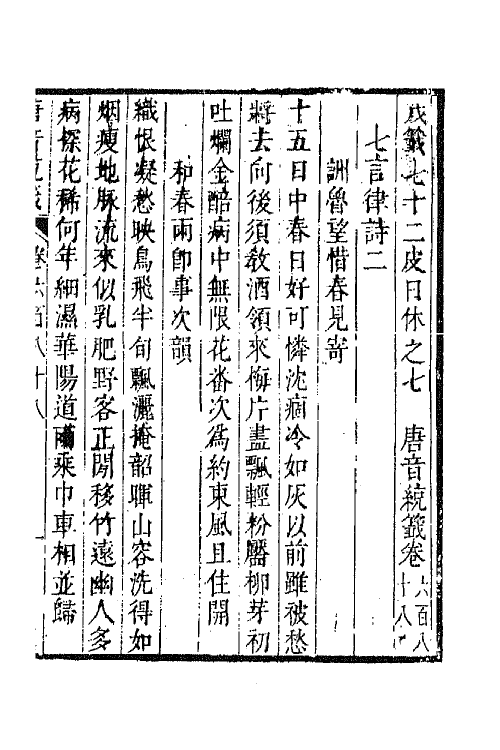 戊籤七十二皮日休之七　唐音統籤卷六百八十八
七言律詩二
詶魯望惜春見寄
十五日中春日好可憐沈痼冷如灰以前雖被愁
將去向後須教酒領來梅片盡飄輕粉靨柳芽初
吐爛金醅病中無限花番次爲約東風且住開
和春雨卽事次韻
織恨凝愁映鳥飛半旬飄灑掩韶暉山容洗得如
烟瘦地脉流來似乳肥野客正閒移竹遠幽人多
病探花稀何年細濕華陽道兩乘巾車相並歸
卷六百八十八